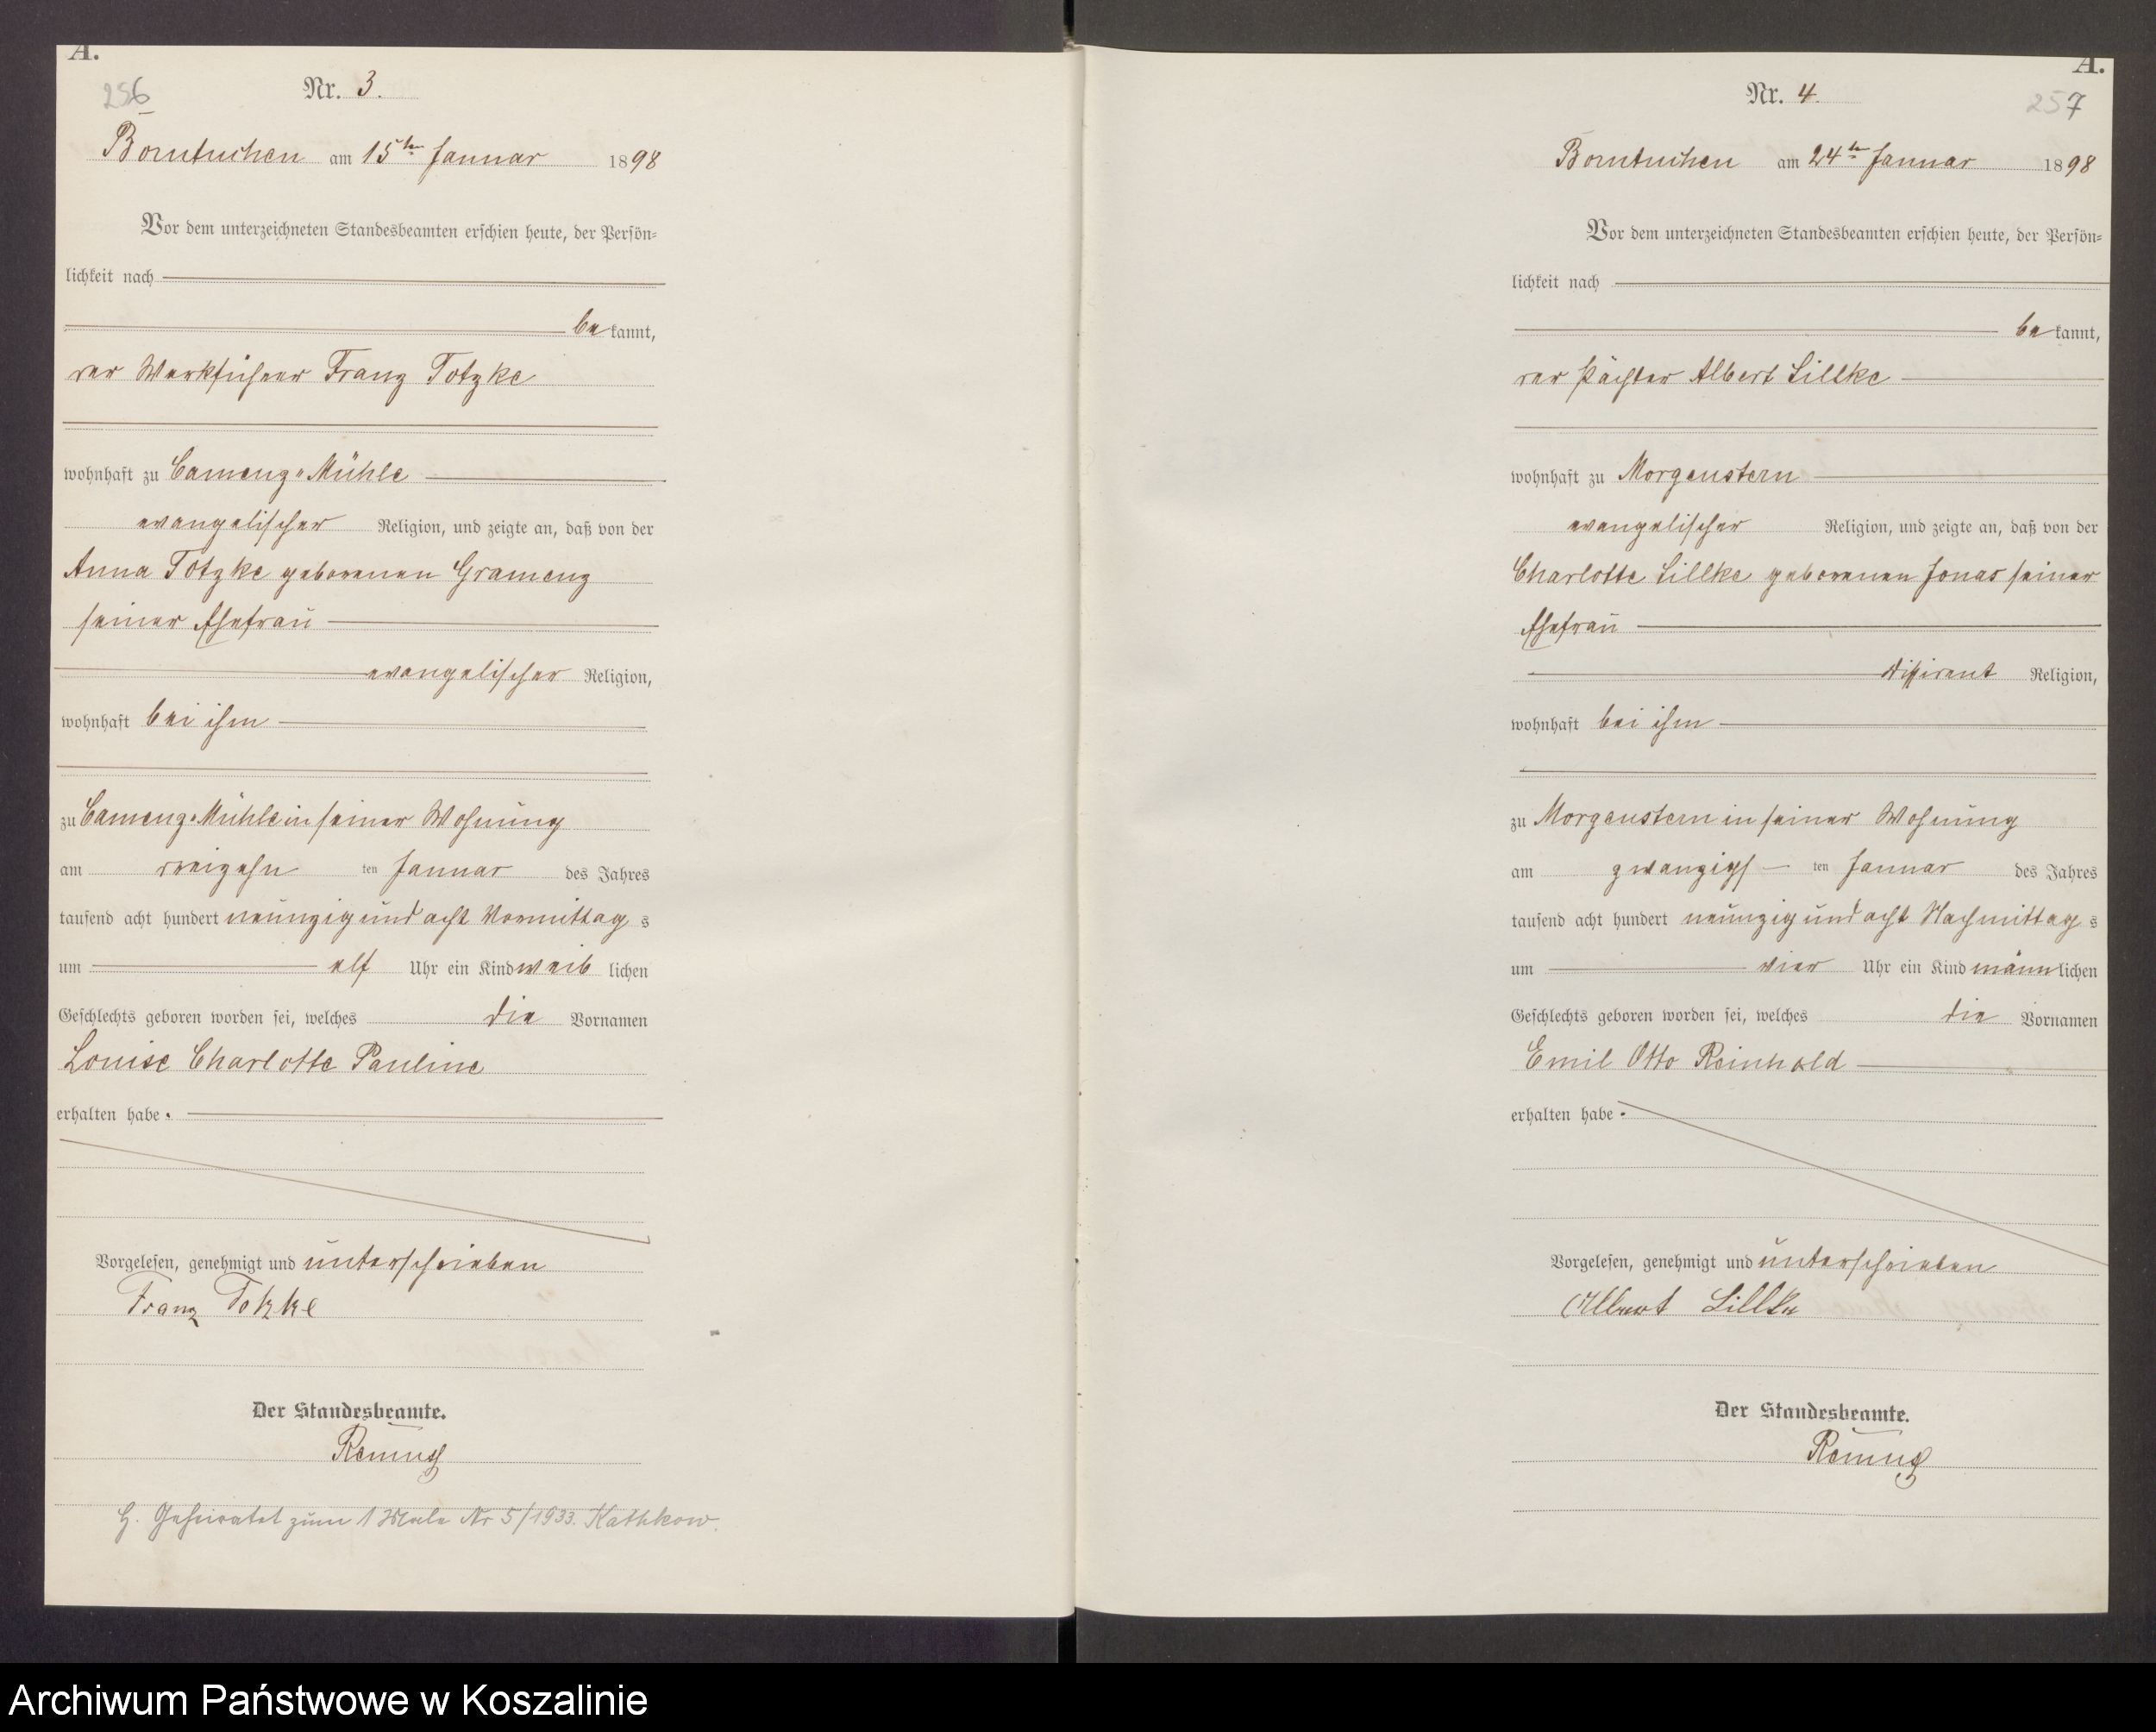 A.
256
Nr. 3.
Borntuchen am 15ten Januar 1898
Vor dem unterzeichneten Standesbeamten erschien heute, der Persön-
lichkeit nach
bekannt,
der Werkführer Franz Totzke
wohnhaft zu Camenz-Mühle
evangelischer Religion, und zeigte an, daß von der
Anna Totzke geborenen Gramenz
seiner Ehefrau
evangelischer Religion,
wohnhaft bei ihm
zu Camenz-Mühle in seiner Wohnung
am dreizehn ten Januar des Jahres
tausend acht hundert neunzig und acht Vormittags
um elf Uhr ein Kind weiblichen
Geschlechts geboren worden sei, welches die Vornamen
Louise Charlotte Pauline
erhalten habe.
Vorgelesen, genehmigt und unterschrieben
Franz Totzke
Der Standesbeamte.
G. Geheiratet zum 1 Male Nr 5/1933. Kathkow.
A.
257
Nr. 4.
Borntuchen am 24ten Januar 1898
Vor dem unterzeichneten Standesbeamten erschien heute, der Persön-
lichkeit nach
bekannt,
der Pächter Albert Lillke
wohnhaft zu Morgenstern
evangelischer Religion, und zeigte an, daß von der
Charlotte Lillke geborenen Jonas seiner
Ehefrau
Religion,
wohnhaft bei ihm
zu Morgenstern in seiner Wohnung
am zwanzigs ten Januar des Jahres
tausend acht hundert neunzig und acht Nachmittags
um vier Uhr ein Kind männlichen
Geschlechts geboren worden sei, welches die Vornamen
Emil Otto Reinhold
erhalten habe.
Vorgelesen, genehmigt und unterschrieben
Albert Lillke
Der Standesbeamte.
Archiwum Państwowe w Koszalinie